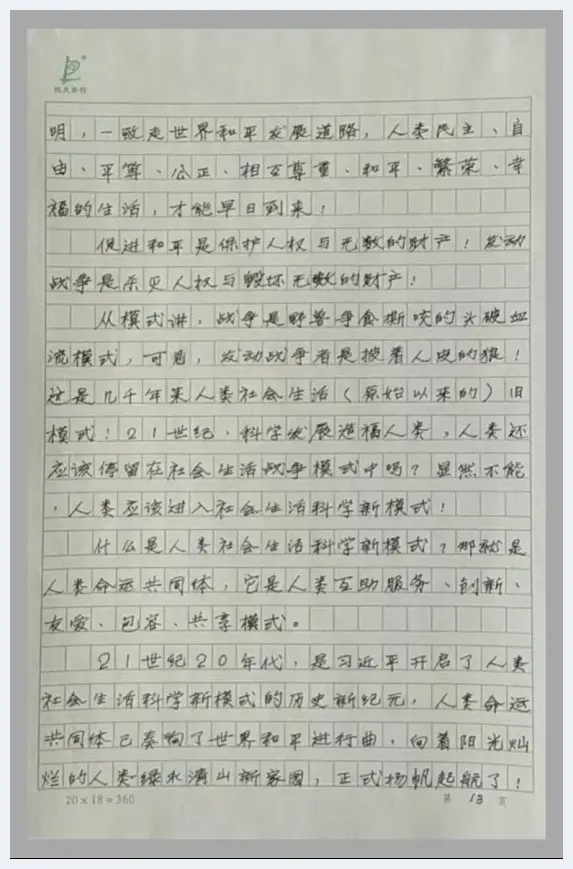 明，一致走世界和平发展道路，人类民主、自
由、平等、公正、相互尊重、和平、繁荣、幸
福的生活，才能早日到来！
促进和平是保护人权与无数的财产！发动
战争是杀灭人权与毁坏无数的财产！
从模式讲，战争是野兽争食撕咬的头破血
流模式，可见，发动战争者是披着人皮的狼！
这是几千年来人类社会生活（原始以来的）旧
模式！21世纪，科学发展造福人类，人类还
应该停留在社会生活战争模式中吗？显然不能
，人类应该进入社会生活科学新模式！
什么是人类社会生活科学新模式？那就是
人类命运共同体，它是人类互助服务、创新、
友爱、包容、共享模式。
21世纪20年代，是习近平开启了人类
社会生活科学新模式的历史新纪元，人类命运
共同体已奏响了世界和平进行曲，向着阳光灿
烂的人类绿水清山新家园，正式扬帆起航了！
20×18=360
第 13 页